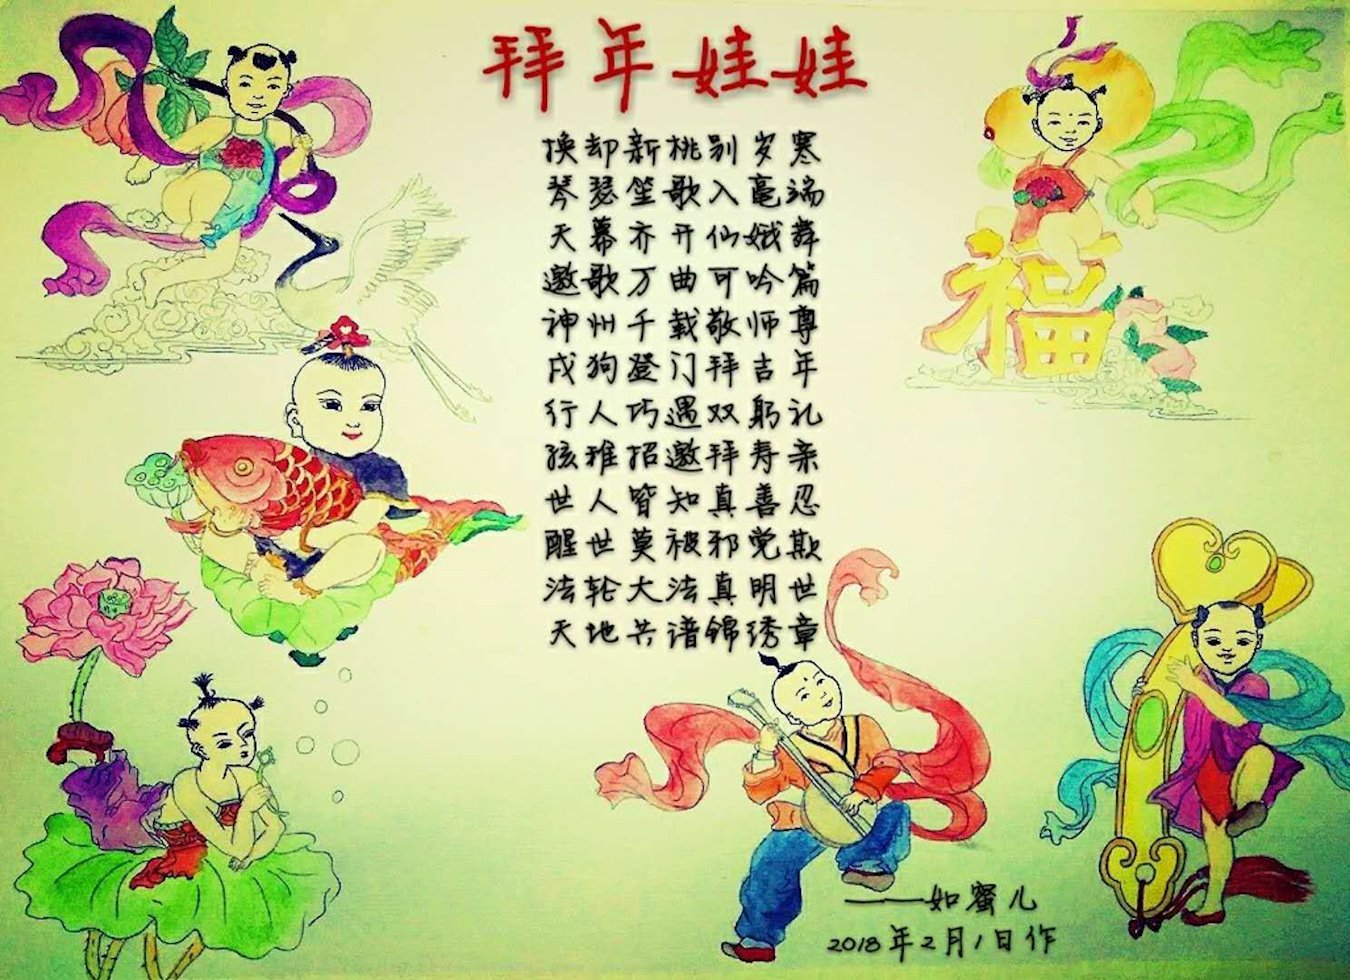 拜年娃娃
换却新桃别岁寒
琴瑟笙歌入毫端
天幕齐开仙娥舞
邀歌万曲可吟篇
神州千载敬师尊
戌狗登门拜吉年
行人巧遇双躬礼
孩稚招邀拜寿亲
世人皆知真善忍
醒世莫被邪党欺
法轮大法真明世
天地共谱锦绣章
福
——如蜜儿
2018年2月1日作